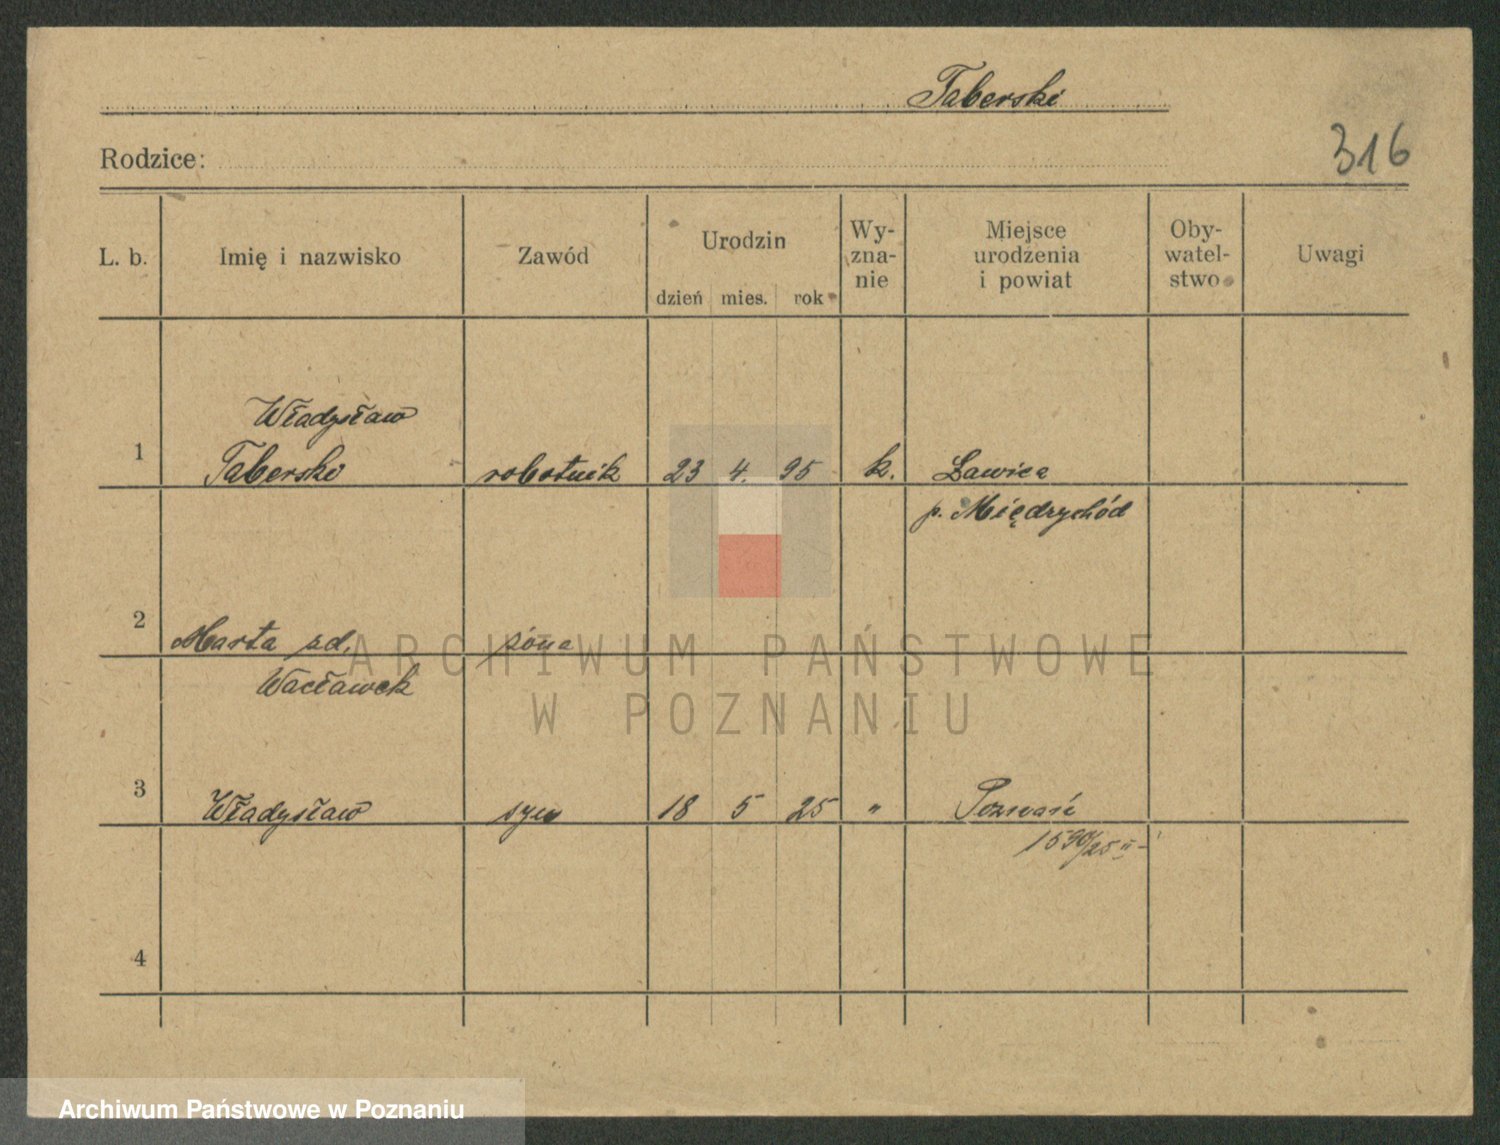 Taberski
316
Rodzice:
L. b. Imię i nazwisko Zawód Urodzin dzień mies. rok Wy-zna-nie Miejsce urodzenia i powiat Oby-watel-stwo Uwagi
Władysław
1 Taberski robotnik 23 4. 95 k. Ławica
p. Międzychód
2 Marta zd. żona
Wacławek
3 Władysław syn 18 5 25 " Poznań
1590/25 II
4
ARCHIWUM PAŃSTWOWE
W POZNANIU
Archiwum Państwowe w Poznaniu